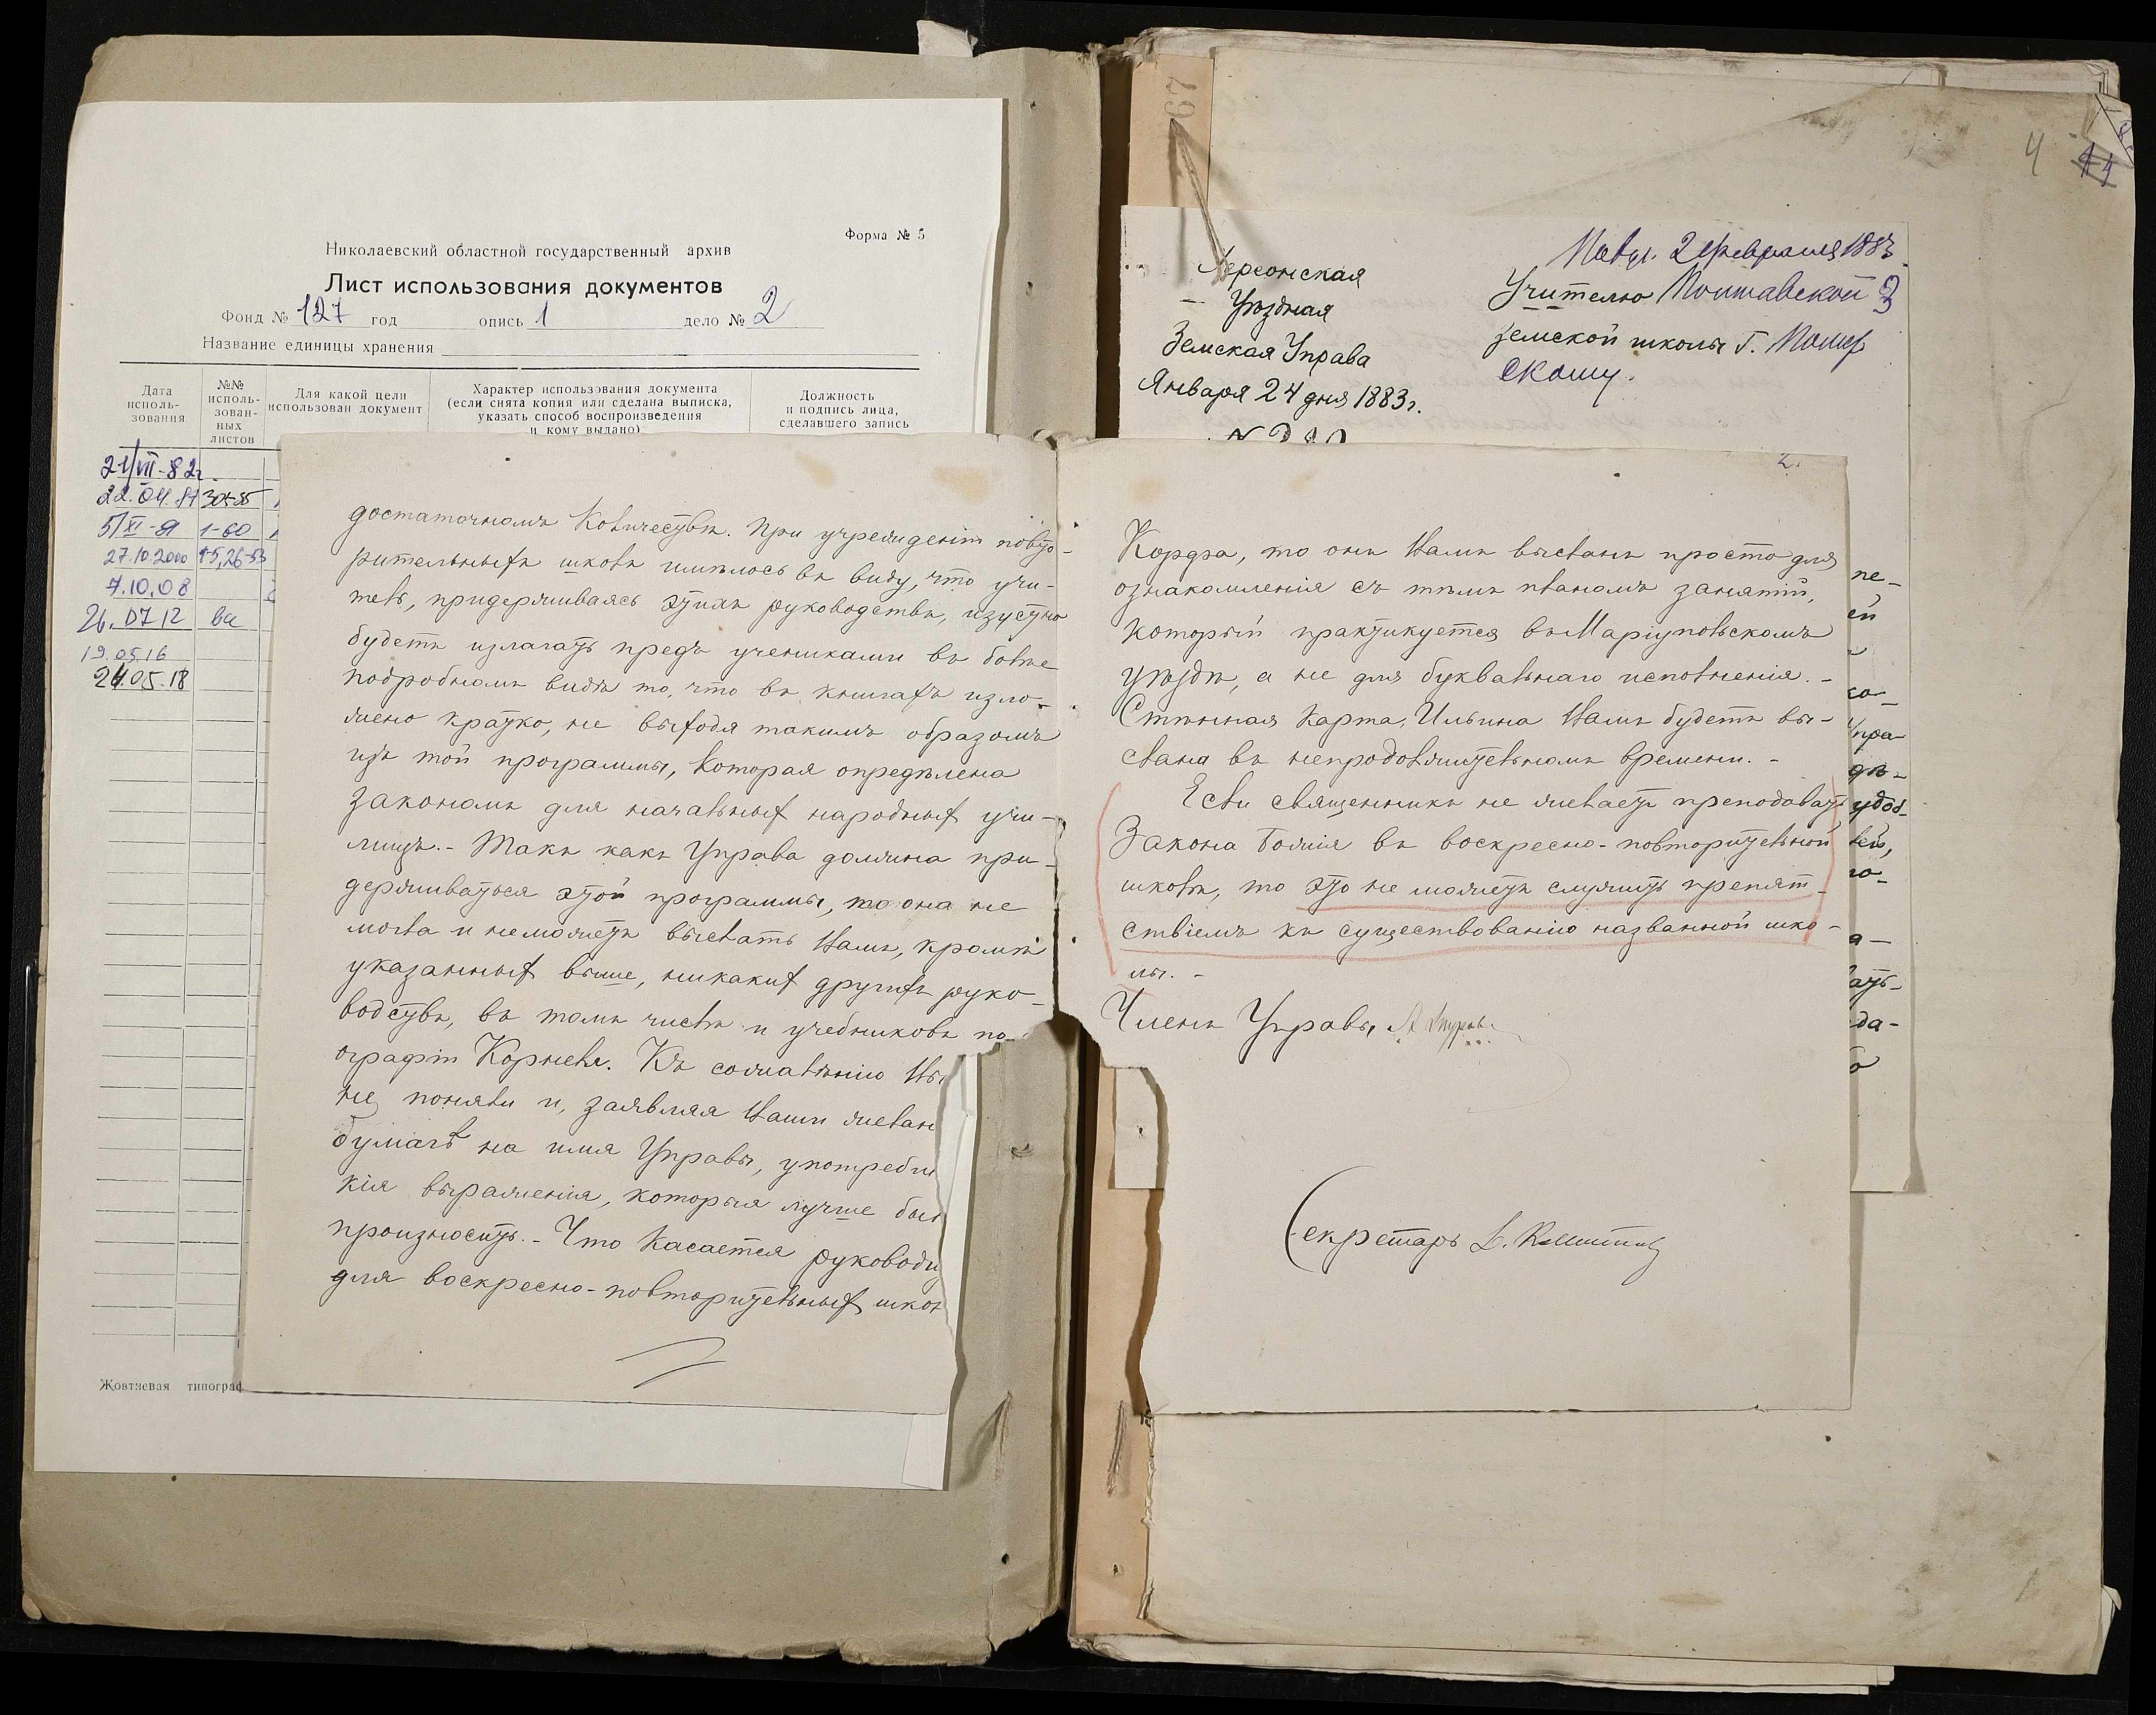 Форма № 5
Николаевский областной государственный архив
Лист использования документов
Фонд № 127 год опись 1 дело № 2
Название единицы хранения
Дата исполь-зования
№№ исполь-зован-ных листов
Для какой цели использован документ
Характер использования документа (если снята копия или сделана выписка, указать способ воспроизведения и кому выдано)
Должность и подпись лица, сделавшего запись
21/VII-82г.
22.04.87 30+85
5/XI-91 1-60
27.10.2000
7.10.08
26.07.12 все
19.05.16
24.05.18
Жовтневая типограф
достаточномъ количествѣ. При учрежденіи повто-
рительныхъ школъ имѣлось въ виду, что учи-
тель, придерживаясь этихъ руководствъ, изустно
будетъ излагать предъ учениками въ болѣе
подробномъ видѣ то, что въ книгахъ изло-
жено кратко, не выходя такимъ образомъ
изъ той программы, которая опредѣлена
закономъ для начальныхъ народныхъ учи-
лищъ. - Такъ какъ Управа должна при-
держиваться этой программы, то она не
могла и неможетъ выслать Вамъ, кромѣ
указанныхъ выше, никакихъ другихъ руко-
водствъ, въ томъ числѣ и учебниковъ
ографіи Корнеля. Къ сожалѣнію Вы
не поняли и, заявляя Ваши желан
бумагѣ на имя Управы, употребли
кія выраженія, которыя лучше был
произносить. - Что касается руководс
для воскресно-повторительныхъ школ
67
4
Херсонская
Уѣздная
Земская Управа
Января 24 дня 1883 г.
2 февраля 1883
Учителю Полтавской
земской школы Г.
скому.
2.
Корфа, то онъ Вамъ высланъ просто для
ознакомленія съ тѣмъ планомъ занятій,
который практикуется въ Маріупольскомъ
уѣздѣ, а не для буквальнаго исполненія. -
Стѣнная карта Ильина Вамъ будетъ вы-
слана въ непродолжительномъ времени. -
Если священникъ не желаетъ преподавать
Закона Божія въ воскресно-повторительной
школѣ, то это не можетъ служить препят-
ствіемъ къ существованію названной шко-
лы. -
Членъ Управы
Секретарь
пе-
ей
со-
Упра-
дѣ-
удов-
лей,
го-
а-
ать-
да-